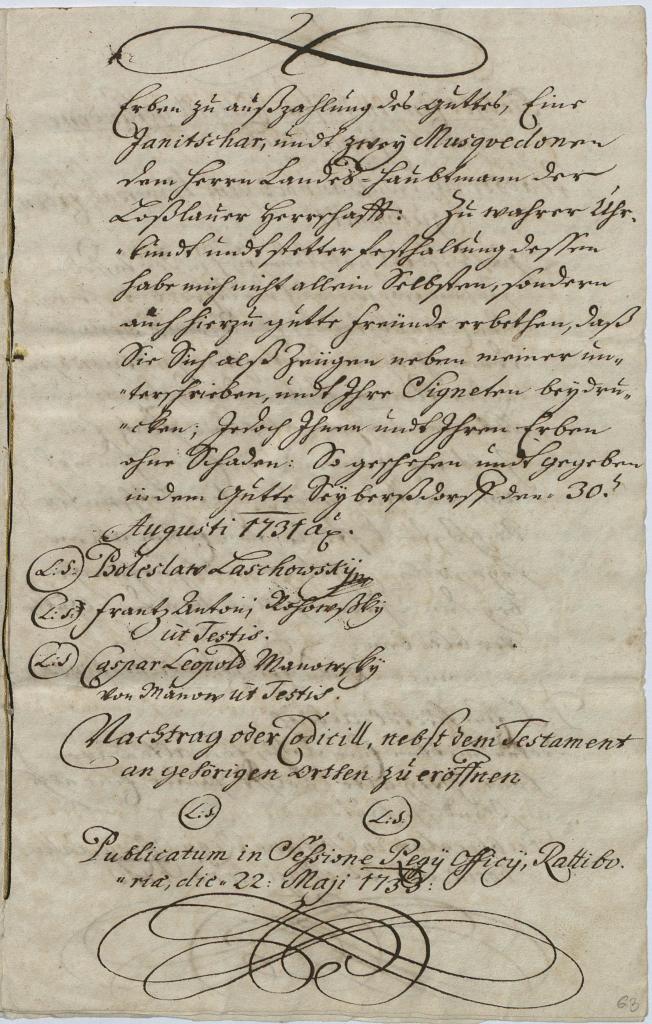 Erben zu außzahlung des Guttes, Eine
Janitschar, undt zwey Musqvedonen
dem Herrn Landes-Haubtmann der
Loßlauer Herrschafft: Zu wahrer Uhr-
"kundt undt stetter festhaltung dessen
habe mich nicht allein Selbsten, sondern
auch hierzu gutte Freunde erbethen, daß
Sie Sich alß Zeugen neben meiner un-
"terschrieben, undt Ihre Signeten beydru-
"cken; Jedoch Ihnen undt Ihren Erben
ohne Schaden: So geschehen undt gegeben
in dem Gutte Seyberßdorff den 30.t
Augusti 1731
L:S: Boleslaw Laschowsky
L:S: Frantz Antoni Rohowßky
ut Testis.
L:S Caspar Leopold Manowsky
von Manow ut Testis.
Nachtrag oder Codicill, nebst dem Testament
an gehörigen Orthen zu eröffnen
L:S L:S:
Publicatum in Sessione Regÿ Officÿ, Rattibo-
"riæ, die 22: Maji
63